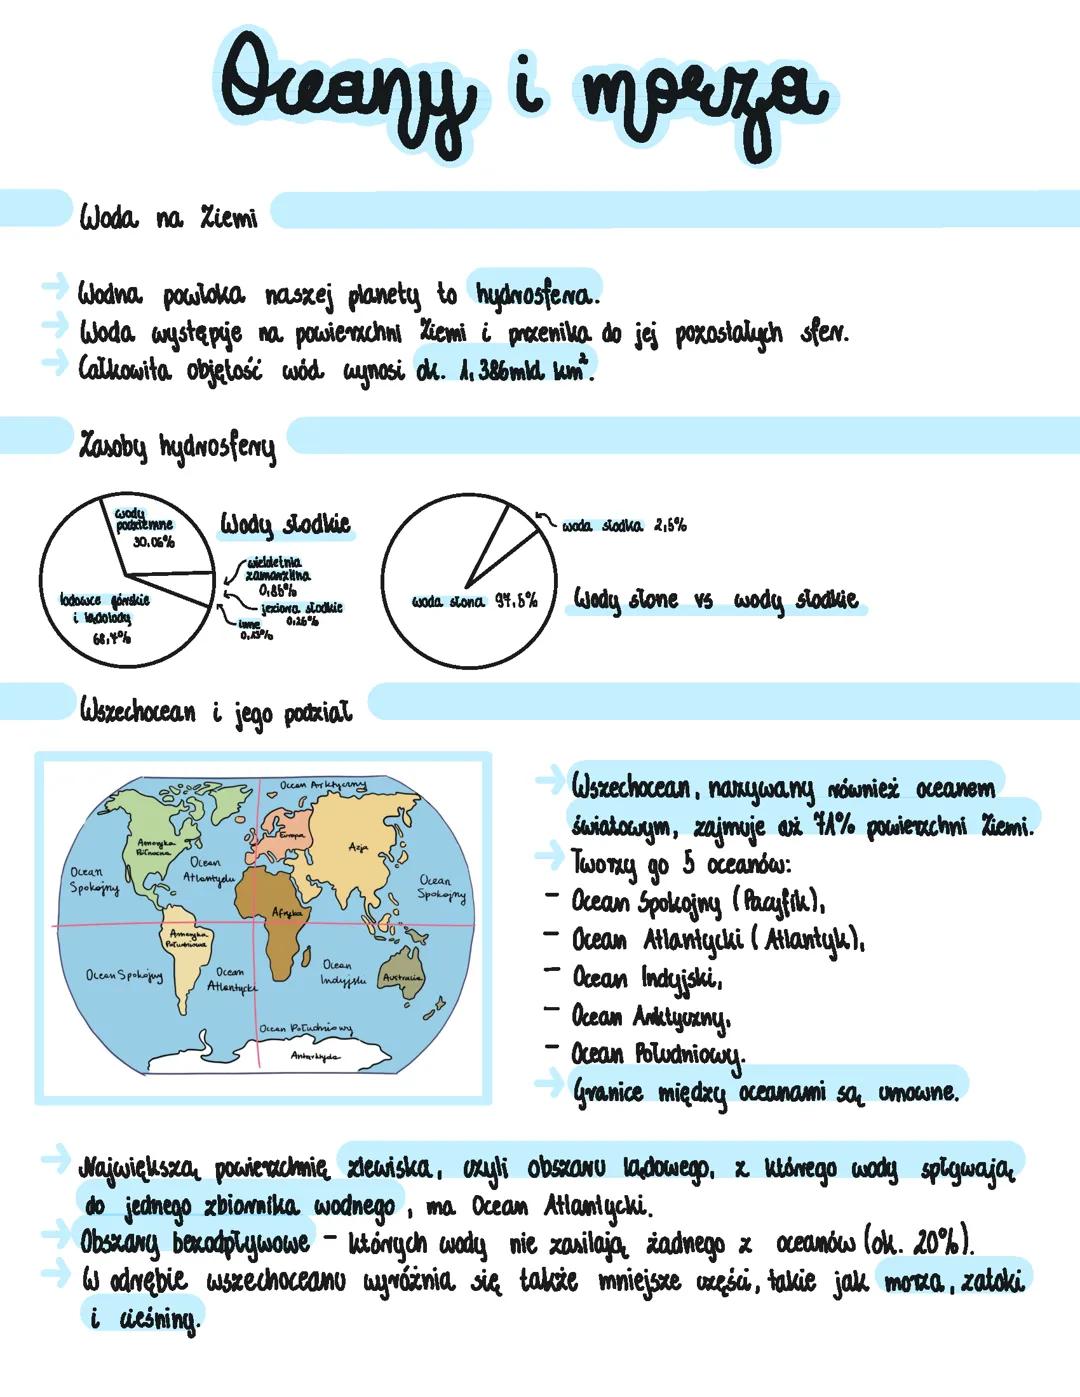 Oceany i morza
Woda na Ziemi
→ Wodna powłoka naszej planety to hydrosfera.
→ Woda występuje na powierzchni Ziemi i przenika do jej pozostałych sfer.
→ Całkowita objętość wód wynosi ok. 1,386mld km².
Zasoby hydrosfery
wody
podziemne
30.06%
lodowce górskie
i lądolody
68,7%
Wody słodkie
wieloletnia
zamarzlina
0,86%
jeziora słodkie
0,26%
inne
woda słodka 2,5%
woda słona 97,5%
Wody słone vs wody słodkie
Wszechocean i jego podział
Ocean Arktyczny
Ameryka
Północna
Europa
Azja
Ocean
Atlantydu
Ocean
Spokojny
Ocean
Spokojny
Afryka
Ameryka
Południowa
Ocean Spokojny
Ocean
Atlantycki
Ocean
Indyjski
Australia
Ocean Południowy
Antarktyda
→ Wszechocean, nazywany również oceanem
światowym, zajmuje aż 71% powierzchni Ziemi.
→ Tworzy go 5 oceanów:
- Ocean Spokojny (Pacyfik),
- Ocean Atlantycki (Atlantyk),
- Ocean Indyjski,
- Ocean Arktyczny,
- Ocean Południowy.
→ Granice między oceanami są umowne.
→ Największą powierzchnię zlewiska, czyli obszaru lądowego, z którego wody spływają
do jednego zbiornika wodnego, ma Ocean Atlantycki.
→ Obszary bezodpływowe - których wody nie zasilają żadnego z oceanów (ok. 20%).
→ W odrębie wszechoceanu wyróżnia się także mniejsze części, takie jak morza, zatoki
i cieśniny.